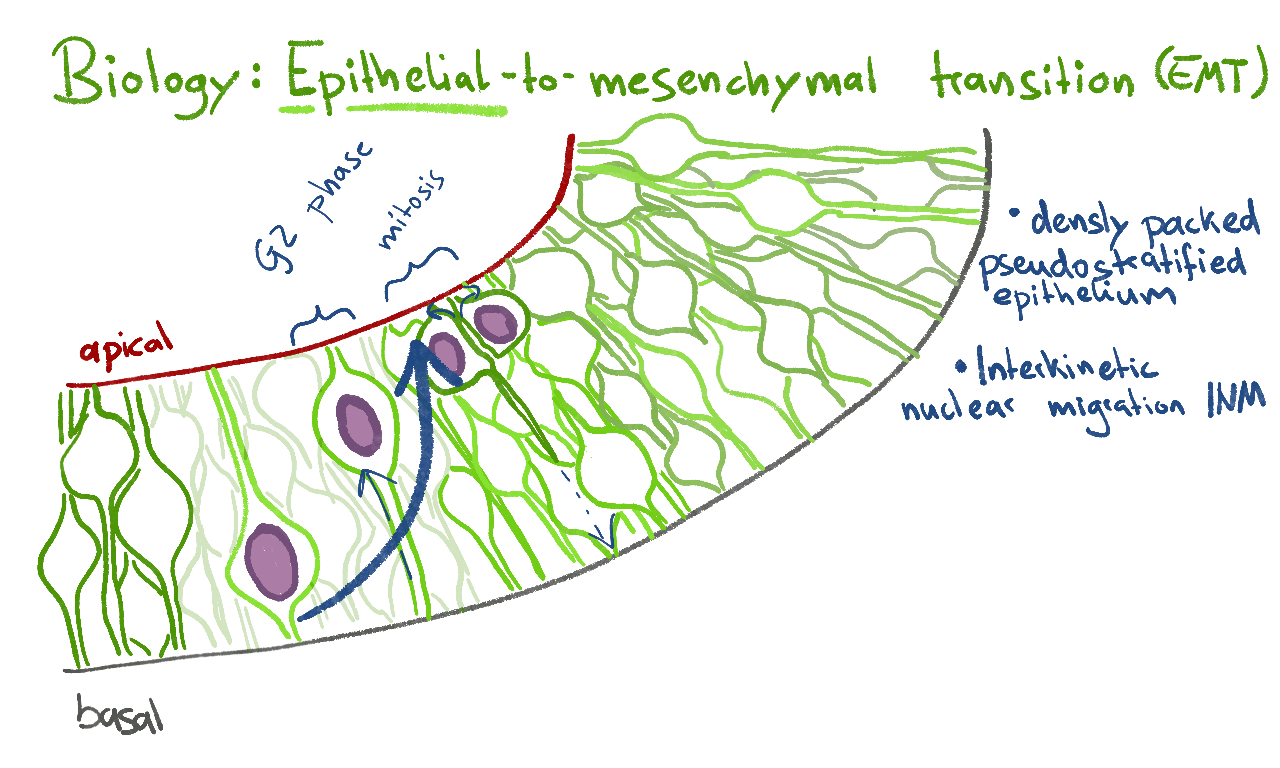 Biology: Epithelial-to-mesenchymal transition (EMT)
G2 phase
mitosis
apical
basal
• densly packed
pseudostratified
epithelium
• Interkinetic
nuclear migration INM